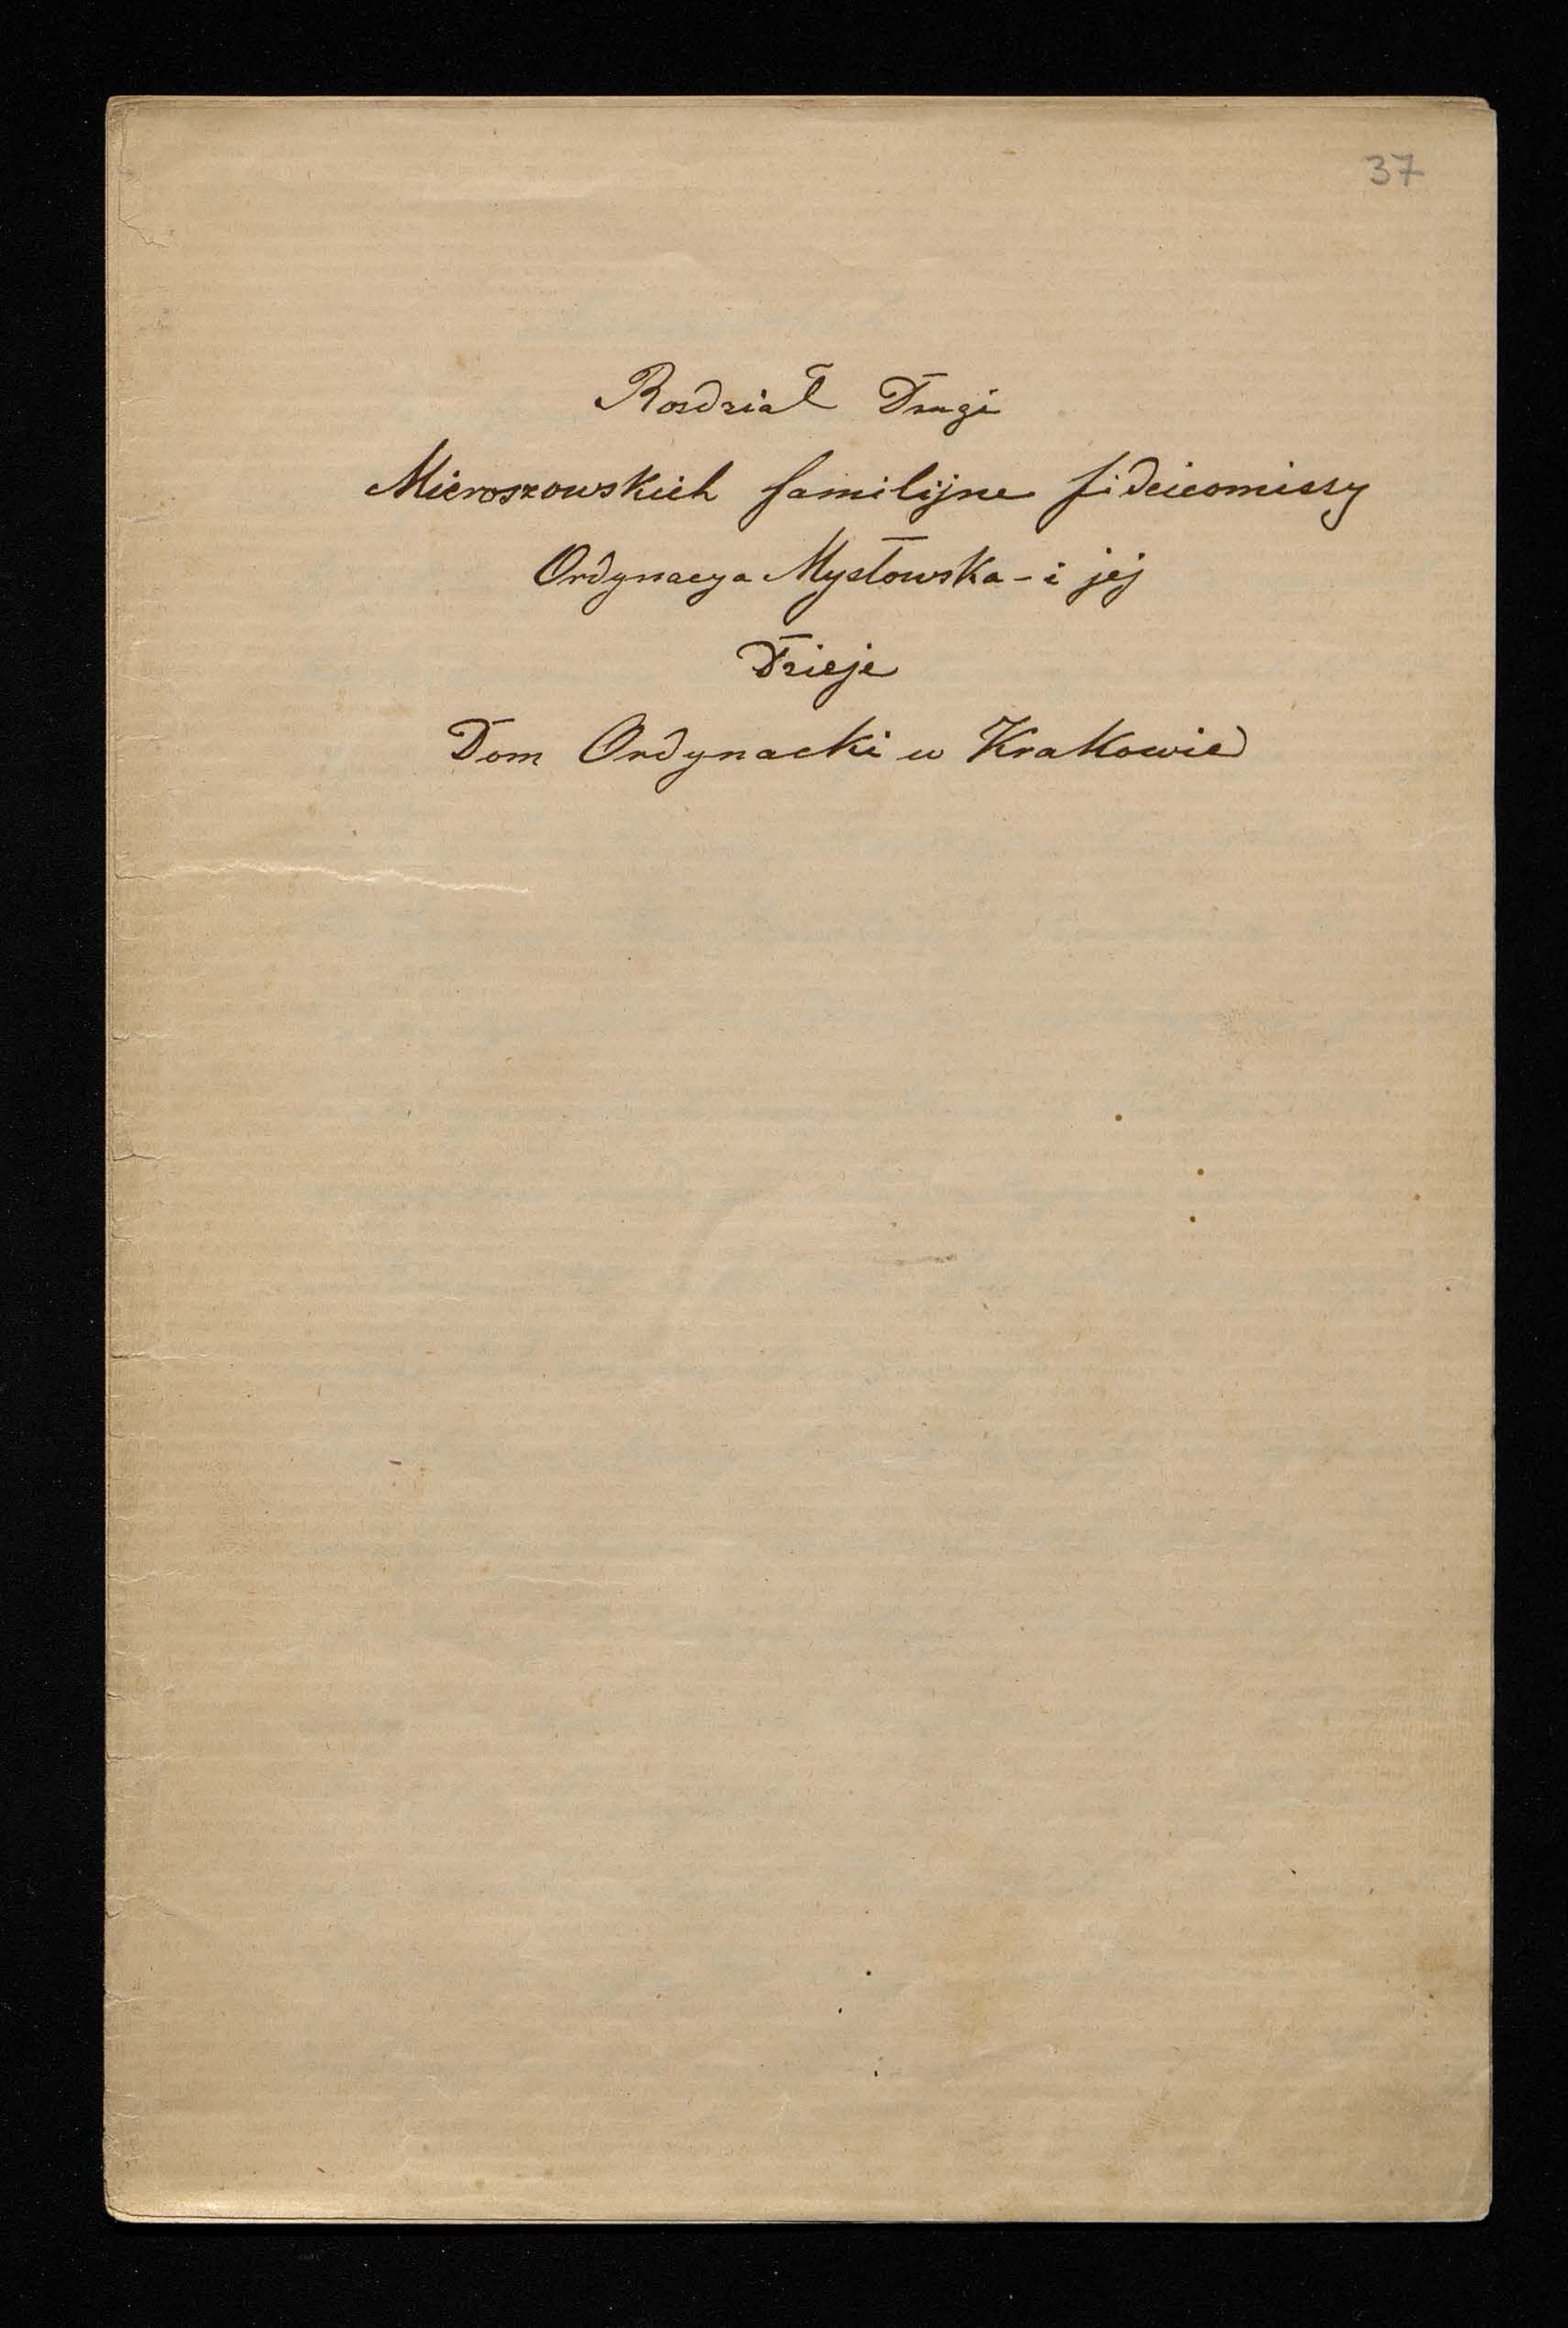 37
Rozdział Drugi
Mieroszowskich familijne fideicomissy
Ordynacya Mysłowska - i jej
Dzieje
Dom Ordynacki w Krakowie